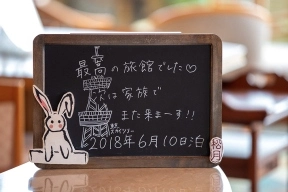 最高の旅館でした♡
次は家族で
また来まーす!!
2018年6月10日泊
松月